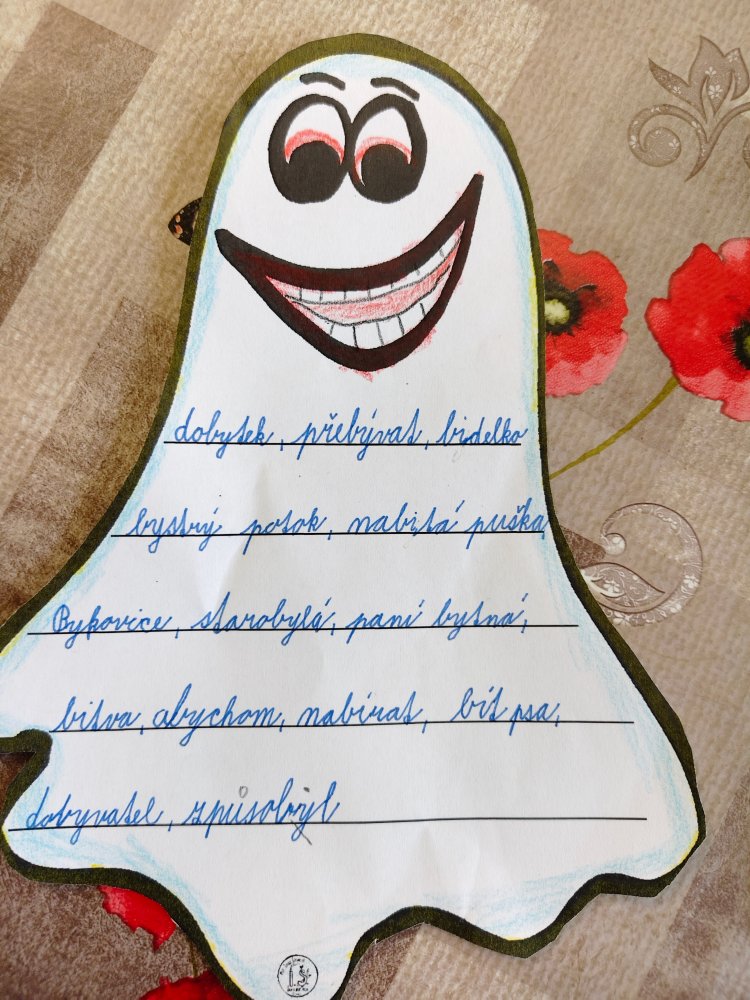 dobytek, přebývat, bidelko
bystrý potok, nabitá puška
Bykovice, starobylá, paní bytná,
bitva, abychom, nabírat, bít psa,
dobyvatel, způsobyl